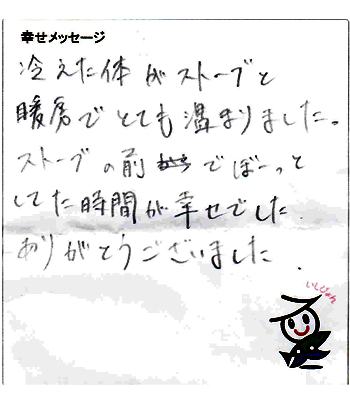 幸せメッセージ
冷えた体がストーブと
暖房でとても温まりました。
ストーブの前でぼーっと
してた時間が幸せでした.
ありがとうございました.
いしぴょん